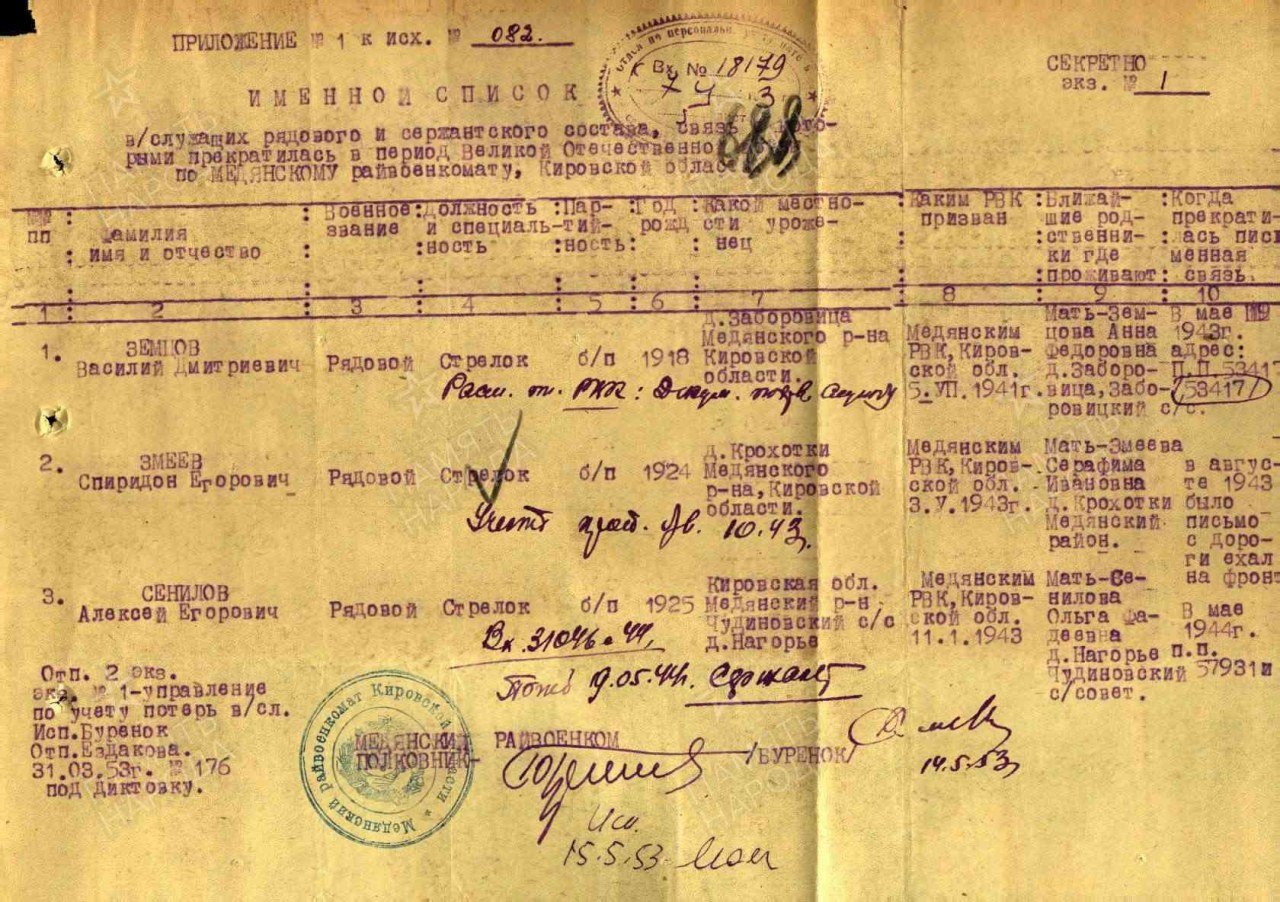 ПРИЛОЖЕНИЕ № 1 к исх. № 082.
СЕКРЕТНО
экз. № 1
Вх. № 18179
ИМЕННОЙ СПИСОК
в/служащих рядового и сержантского состава, связь
рыми прекратилась в период Великой Отечественно
по МЕДЯНСКОМУ райвоенкомату, Кировской облас
№№ пп : Фамилия имя и отчество : Военное звание : должность и специальность : Партийность : Год рожд : Какой местности уроженец : Каким РВК призван : Ближайшие родственники где проживают : Когда прекратилась письменная связь.
1 : 2 : 3 : 4 : 5 : 6 : 7 : 8 : 9 : 10
1. ЗЕМЦОВ Василий Дмитриевич Рядовой Стрелок б/п 1918 д.Заборовица Медянского р-на Кировской области. Медянским РВК,Киров-ской обл. 5.УП.1941г. Мать-Зем-цова Анна Федоровна д.Заборо-вица,Забо-ровицкий с/с. В мае 1943г. адрес: П.П.53417 /53417/
2. ЗМЕЕВ Спиридон Егорович Рядовой Стрелок б/п 1924 д.Крохотки Медянского р-на,Кировской области. Медянским РВК,Киров-ской обл. 3.У.1943г. Мать-Змеева Серафима Ивановна д.Крохотки Медянский район. в авгус-те 1943 было письмо с доро-ги ехал на фронт
10.43г.
3. СЕНИЛОВ Алексей Егорович Рядовой Стрелок б/п 1925 Кировская обл. Медянский р-н Чудиновский с/с д.Нагорье Медянским РВК,Киров-ской обл. 11.1.1943 Мать-Се-нилова Ольга Фа-деевна д.Нагорье Чудиновский с/совет. В мае 1944г. п.п. 57931и
Вх. 31046-44,
19.05.44. сержант
Отп. 2 экз.
экз. № 1-управление
по учету потерь в/сл.
Исп.Буренок
Отп.Ездакова.
31.03.53г. № 176
под диктовку.
МЕДЯНСКИЙ РАЙВОЕНКОМ
ПОЛКОВНИК- /БУРЕНОК/
Медянский Райвоенкомат Кировской области
14.5.53г
Исп.
15.5.53
ПАМЯТЬ НАРОДА